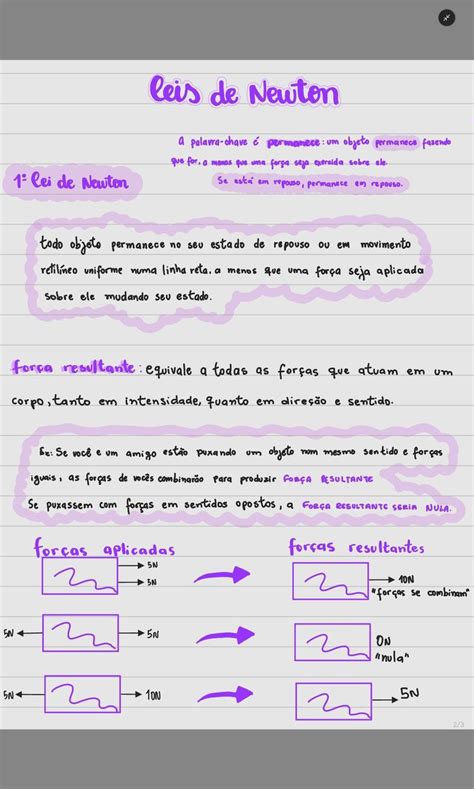 Leis de Newton
A palavra-chave é permanece: um objeto permanece fazendo
que for, a menos que uma força seja exercida sobre ele.
1ª Lei de Newton
Se está em repouso, permanece em repouso.
todo objeto permanece no seu estado de repouso ou em movimento
retilíneo uniforme numa linha reta, a menos que uma força seja aplicada
sobre ele mudando seu estado.
força resultante: equivale a todas as forças que atuam em um
corpo, tanto em intensidade, quanto em direção e sentido.
Ex: Se você e um amigo estão puxando um objeto num mesmo sentido e forças
iguais, as forças de vocês combinarão para produzir FORÇA RESULTANTE
Se puxassem com forças em sentidos opostos, a FORÇA RESULTANTE SERIA NULA.
forças aplicadas
forças resultantes
5N
5N
10N
"forças se combinam"
5N
5N
0N
"nula"
5N
10N
5N
2/3